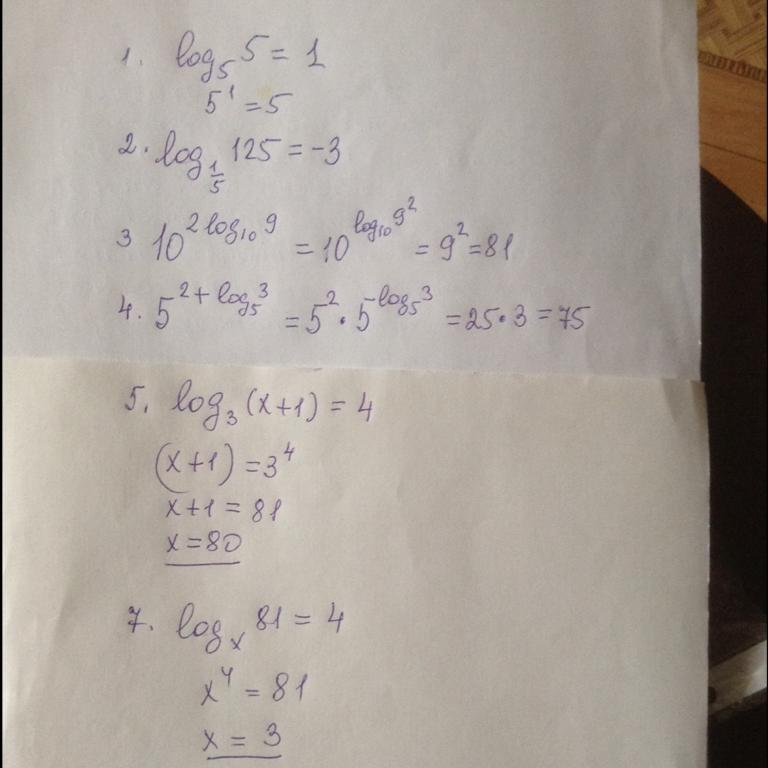 1. log₅ 5 = 1
5¹ = 5
2. log_{1/5} 125 = -3
3 10^{2 log₁₀ 9} = 10^{log₁₀ 9²} = 9² = 81
4. 5^{2 + log₅ 3} = 5² · 5^{log₅ 3} = 25 · 3 = 75
5. log₃ (x+1) = 4
(x+1) = 3⁴
x+1 = 81
x = 80
7. logₓ 81 = 4
x⁴ = 81
x = 3